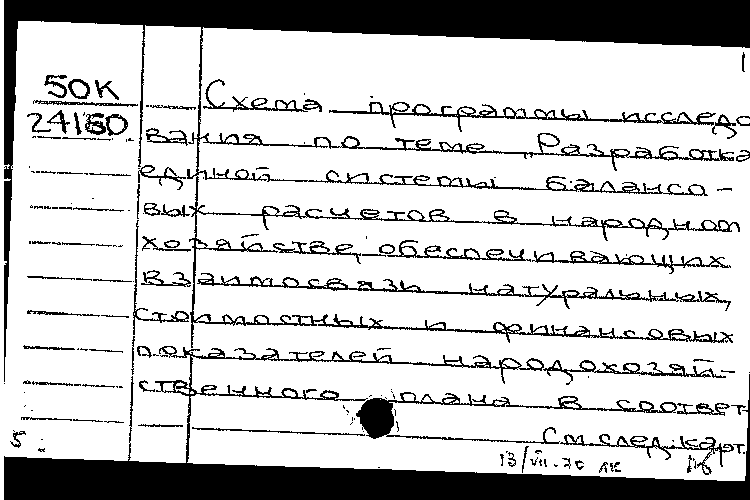 1
50К
24180
Схема программы исследо
вания по теме „Разработка
единой системы балансо-
вых расчетов в народном
хозяйстве, обеспечивающих
взаимосвязи натуральных,
стоимостных и финансовых
показателей народнохозяй-
ственного плана в соответ-
См.след.карт.
5
13/VII-70